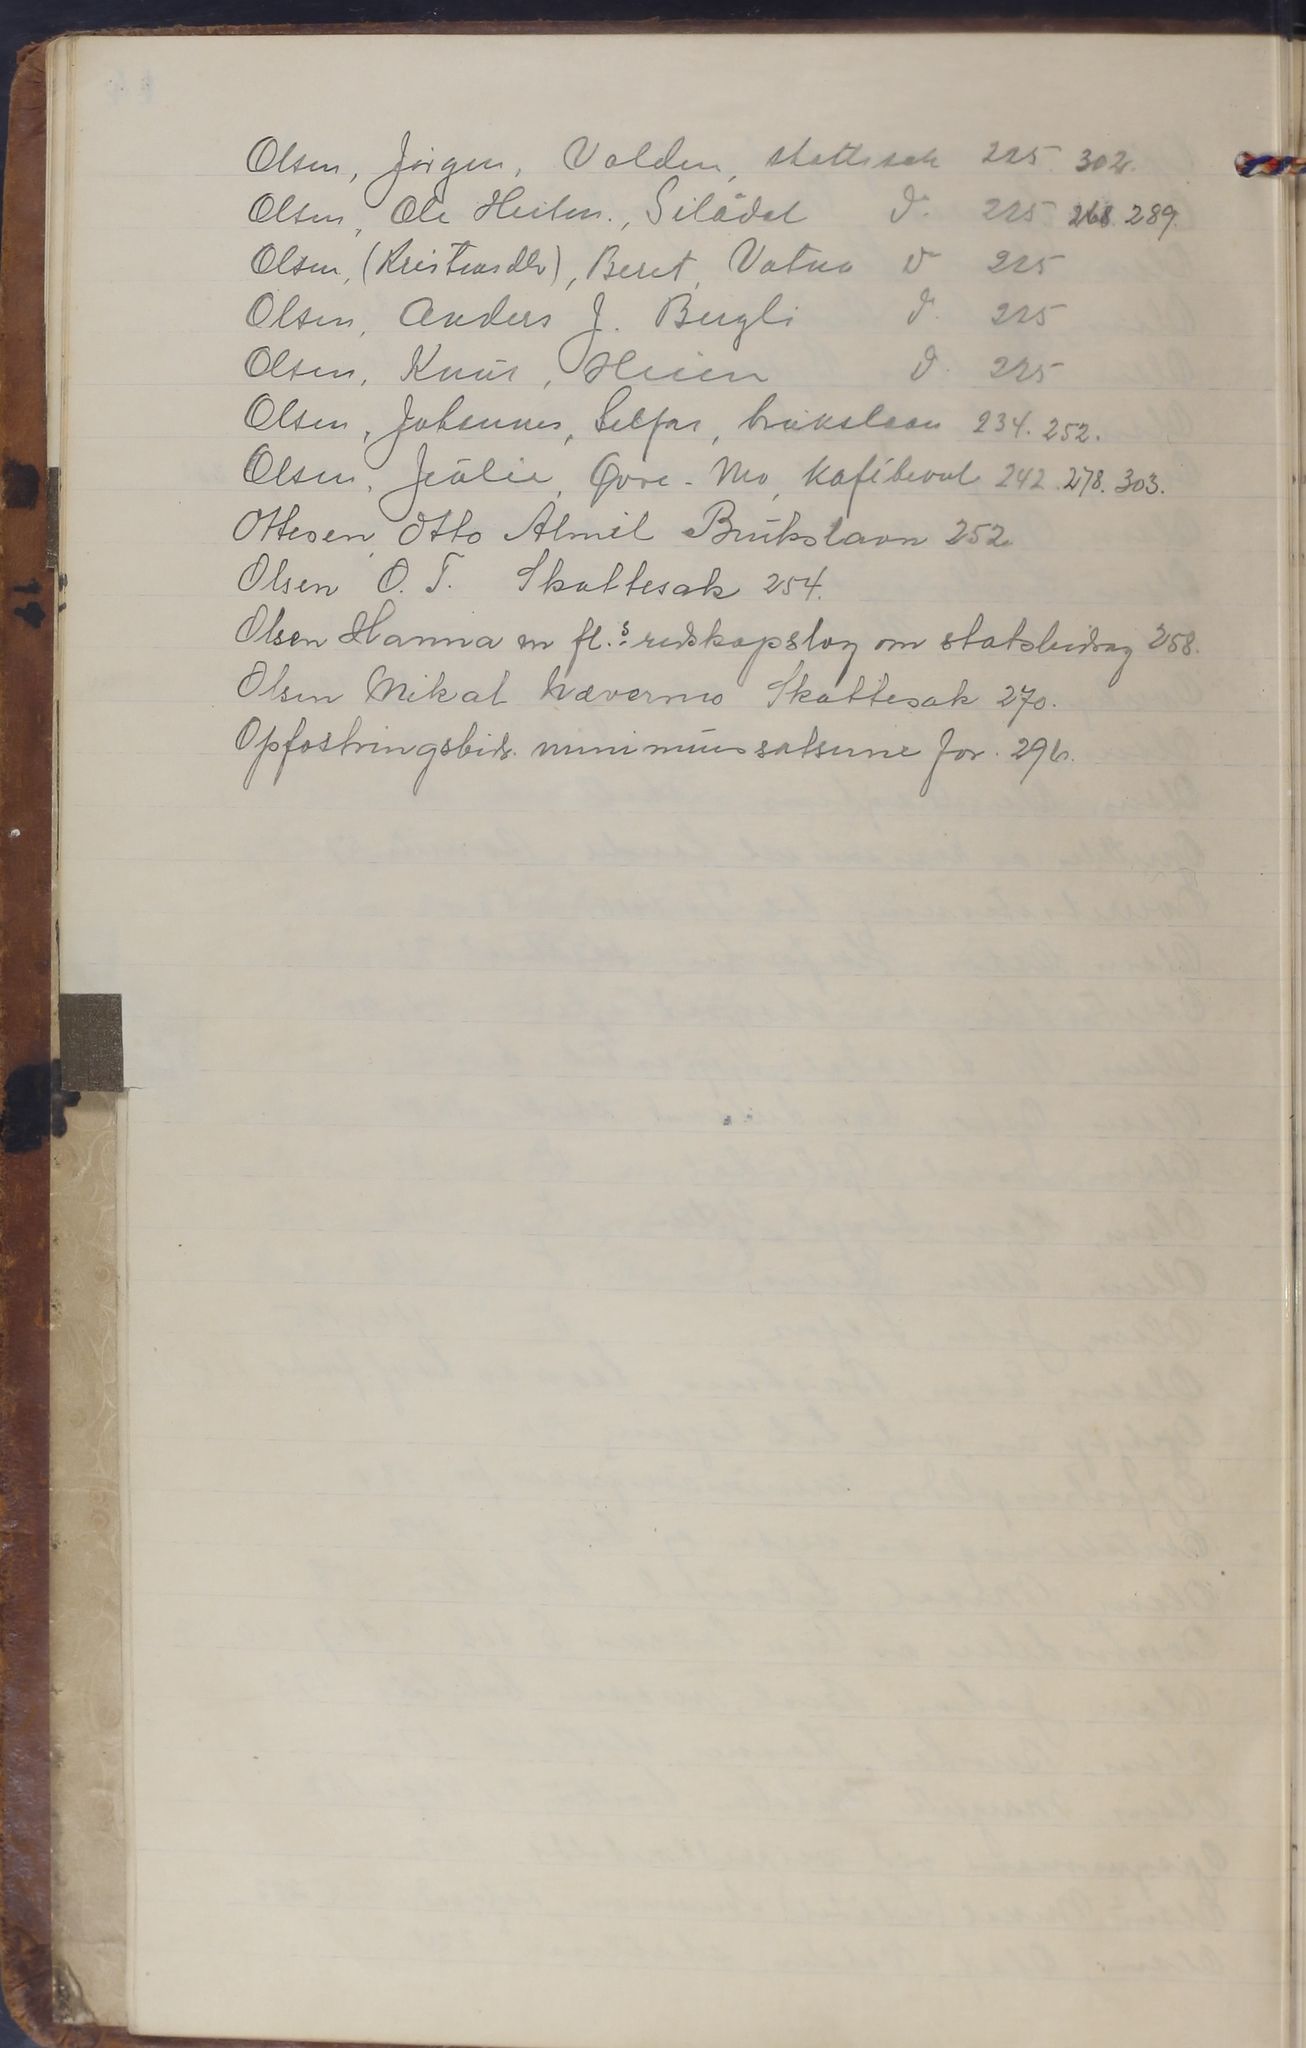 Olsen, Jörgen, Volden, skattesak 225. 302.
Olsen, Ole Heitm., Silådal d. 225 268. 289.
Olsen, (Kristiansdtr), Beret, Vatna d 225
Olsen, Anders J. Bergli d. 225
Olsen, Knut, Heien d. 225
Olsen, Johannes, Selfor, brukslaan 234. 252.
Olsen, Julie, Øvre-Mo, kafibevol 242. 278. 303.
Ottesen, Otto Almél Brukslaan 252.
Olsen O. T. Skattesak 254.
Olsen Hanna m fl.s redskapslag om statsbidrag 258.
Olsen Mikal Nævermo Skattesak 270.
Opfostringsbidr. minimumssatserne for. 296.